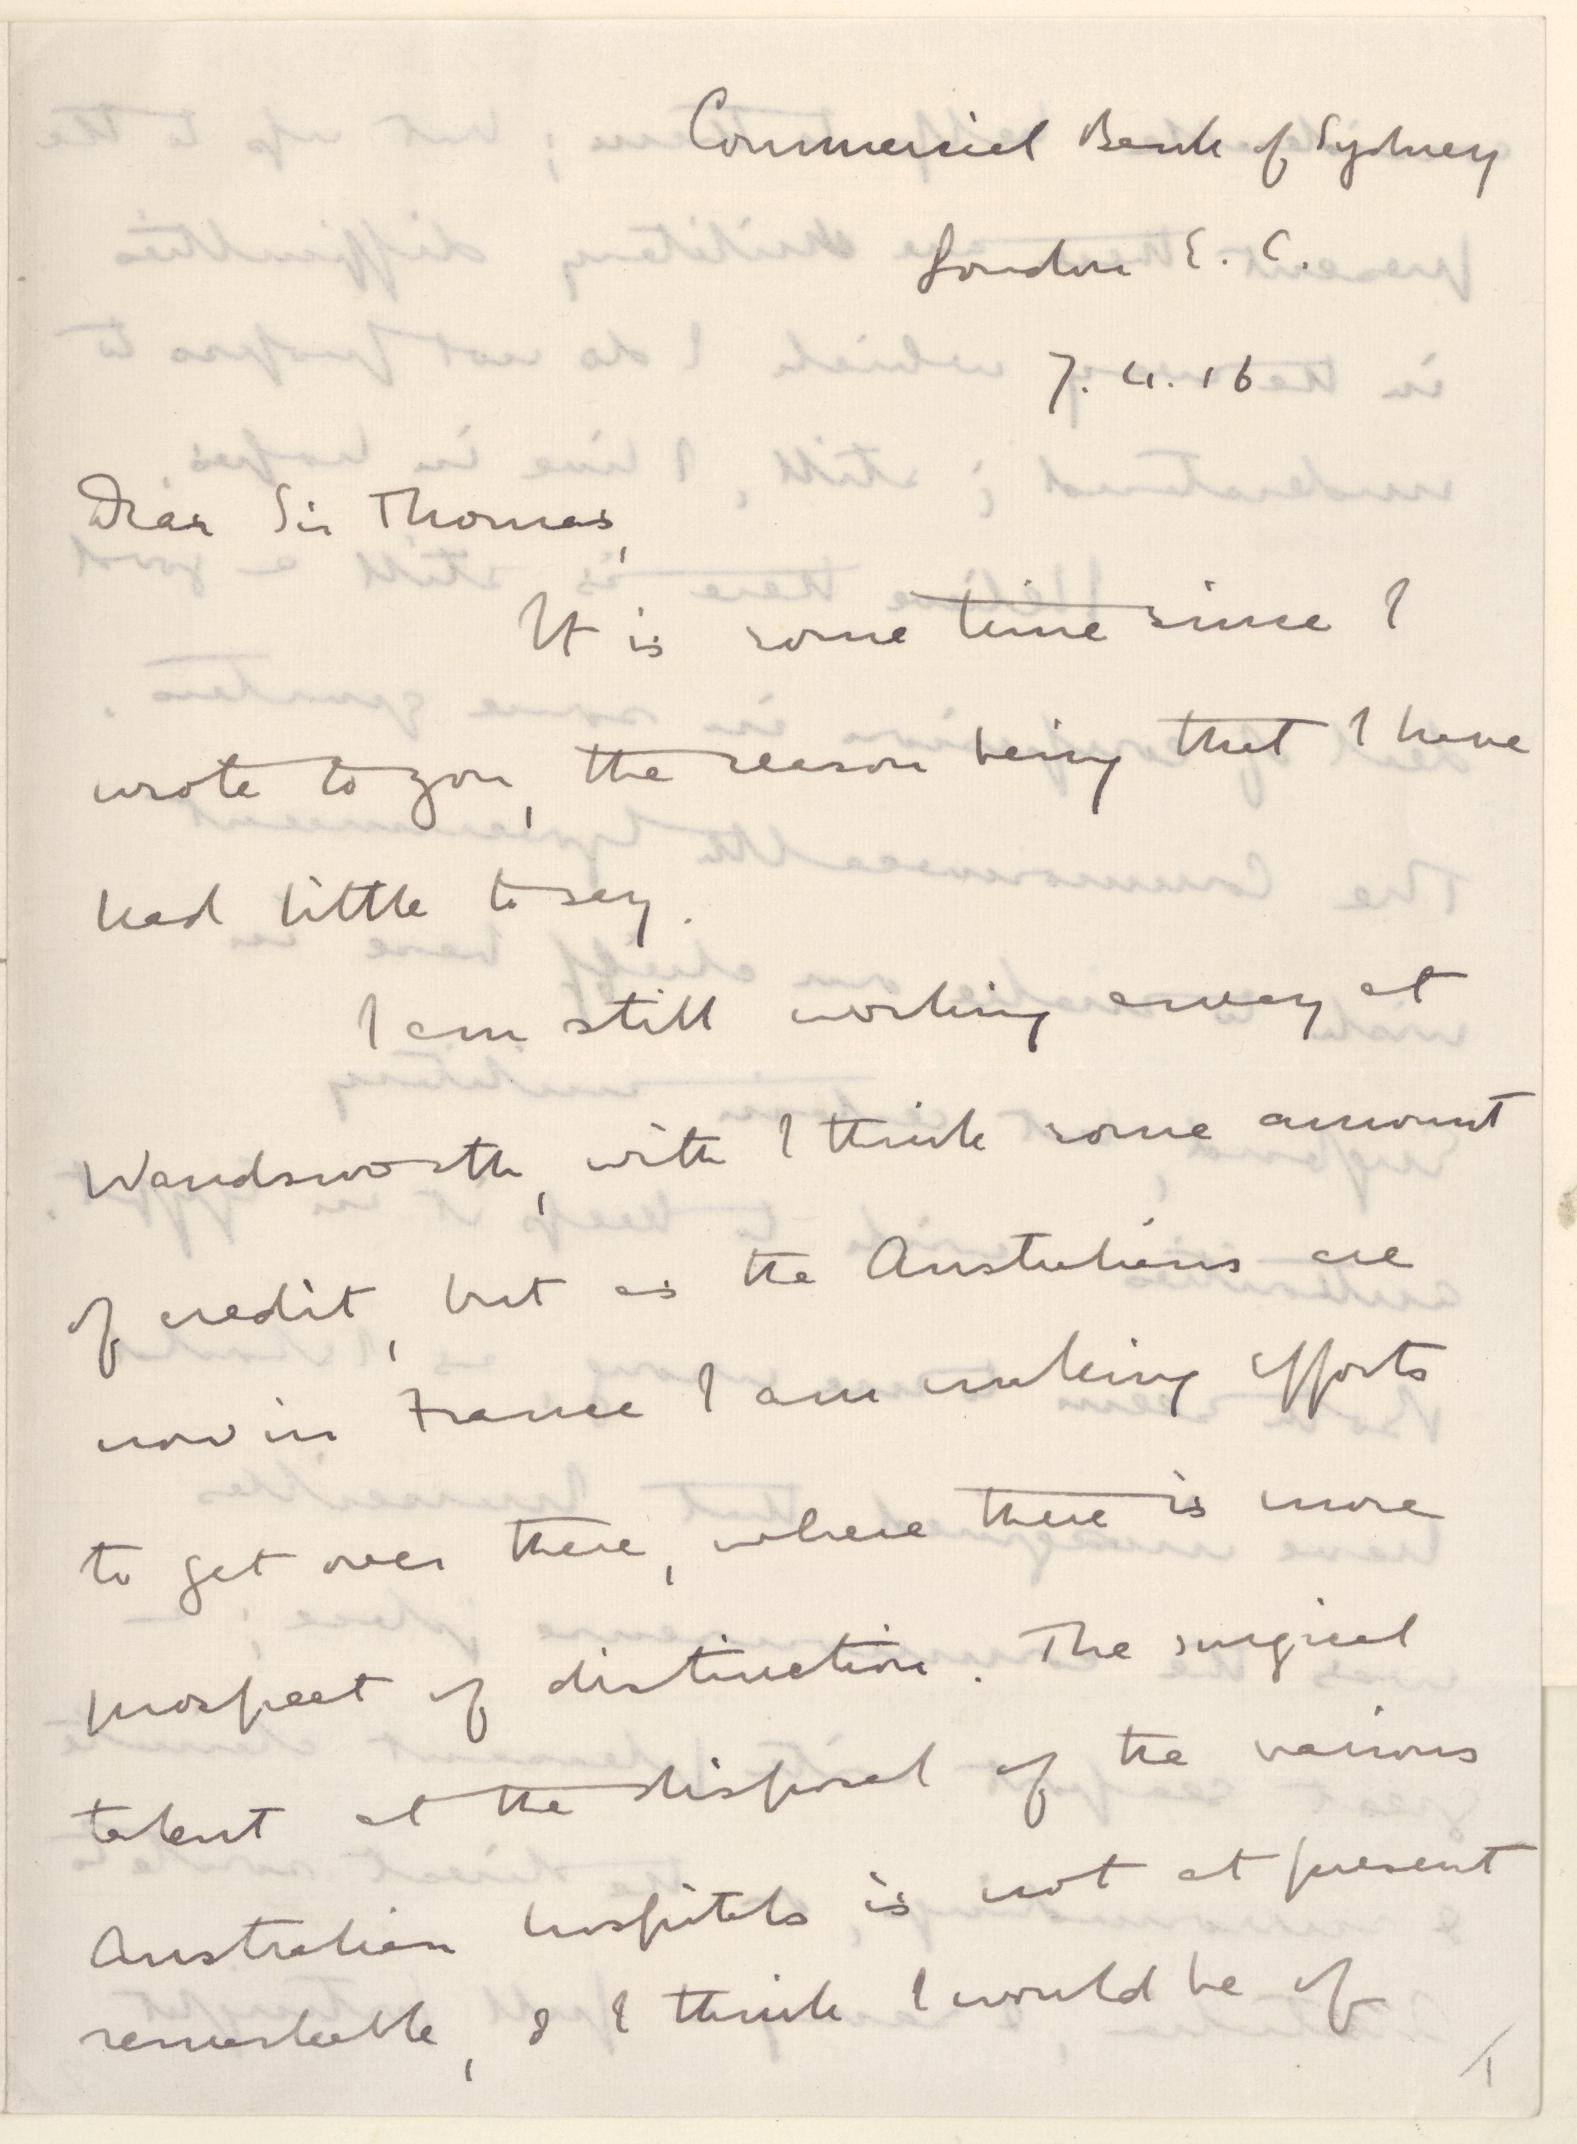 Commercial Bank of Sydney
London E. C.
7. 4. 16
Dear Sir Thomas,
It is some time since I
wrote to you, the reason being that I have
had little to say.
I am still working away at
Wandsworth, with I think some amount
of credit, but as the Australians are
now in France I am making efforts
to get over there, where there is more
prospect of distinction. The surgical
talent at the disposal of the various
Australian hospitals is not at present
remarkable, & I think I would be of
1